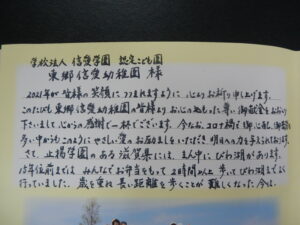 学校法人 信愛学園 認定こども園
東郷信愛幼稚園 様
2021年が皆様の笑顔に つつまれますように 心よりお祈り申し上げます。
このたびも 東郷信愛幼稚園の皆様より お心のこもった 尊い御献金をお送り
下さいまして 心からの感謝で一杯でございます。今なお、コロナ禍で御心配、御苦労
多い中から このようにやさしい愛のお届けをいただき 明日への力を与えられております。
さて 止揚学園のある滋賀県には、まん中に びわ湖があります。
15年位前までは みんなでお弁当をもって 2時間以上 歩いて びわ湖まで
行っていました。歳を重ね 長い距離を歩くことが 難しくなった 今は、